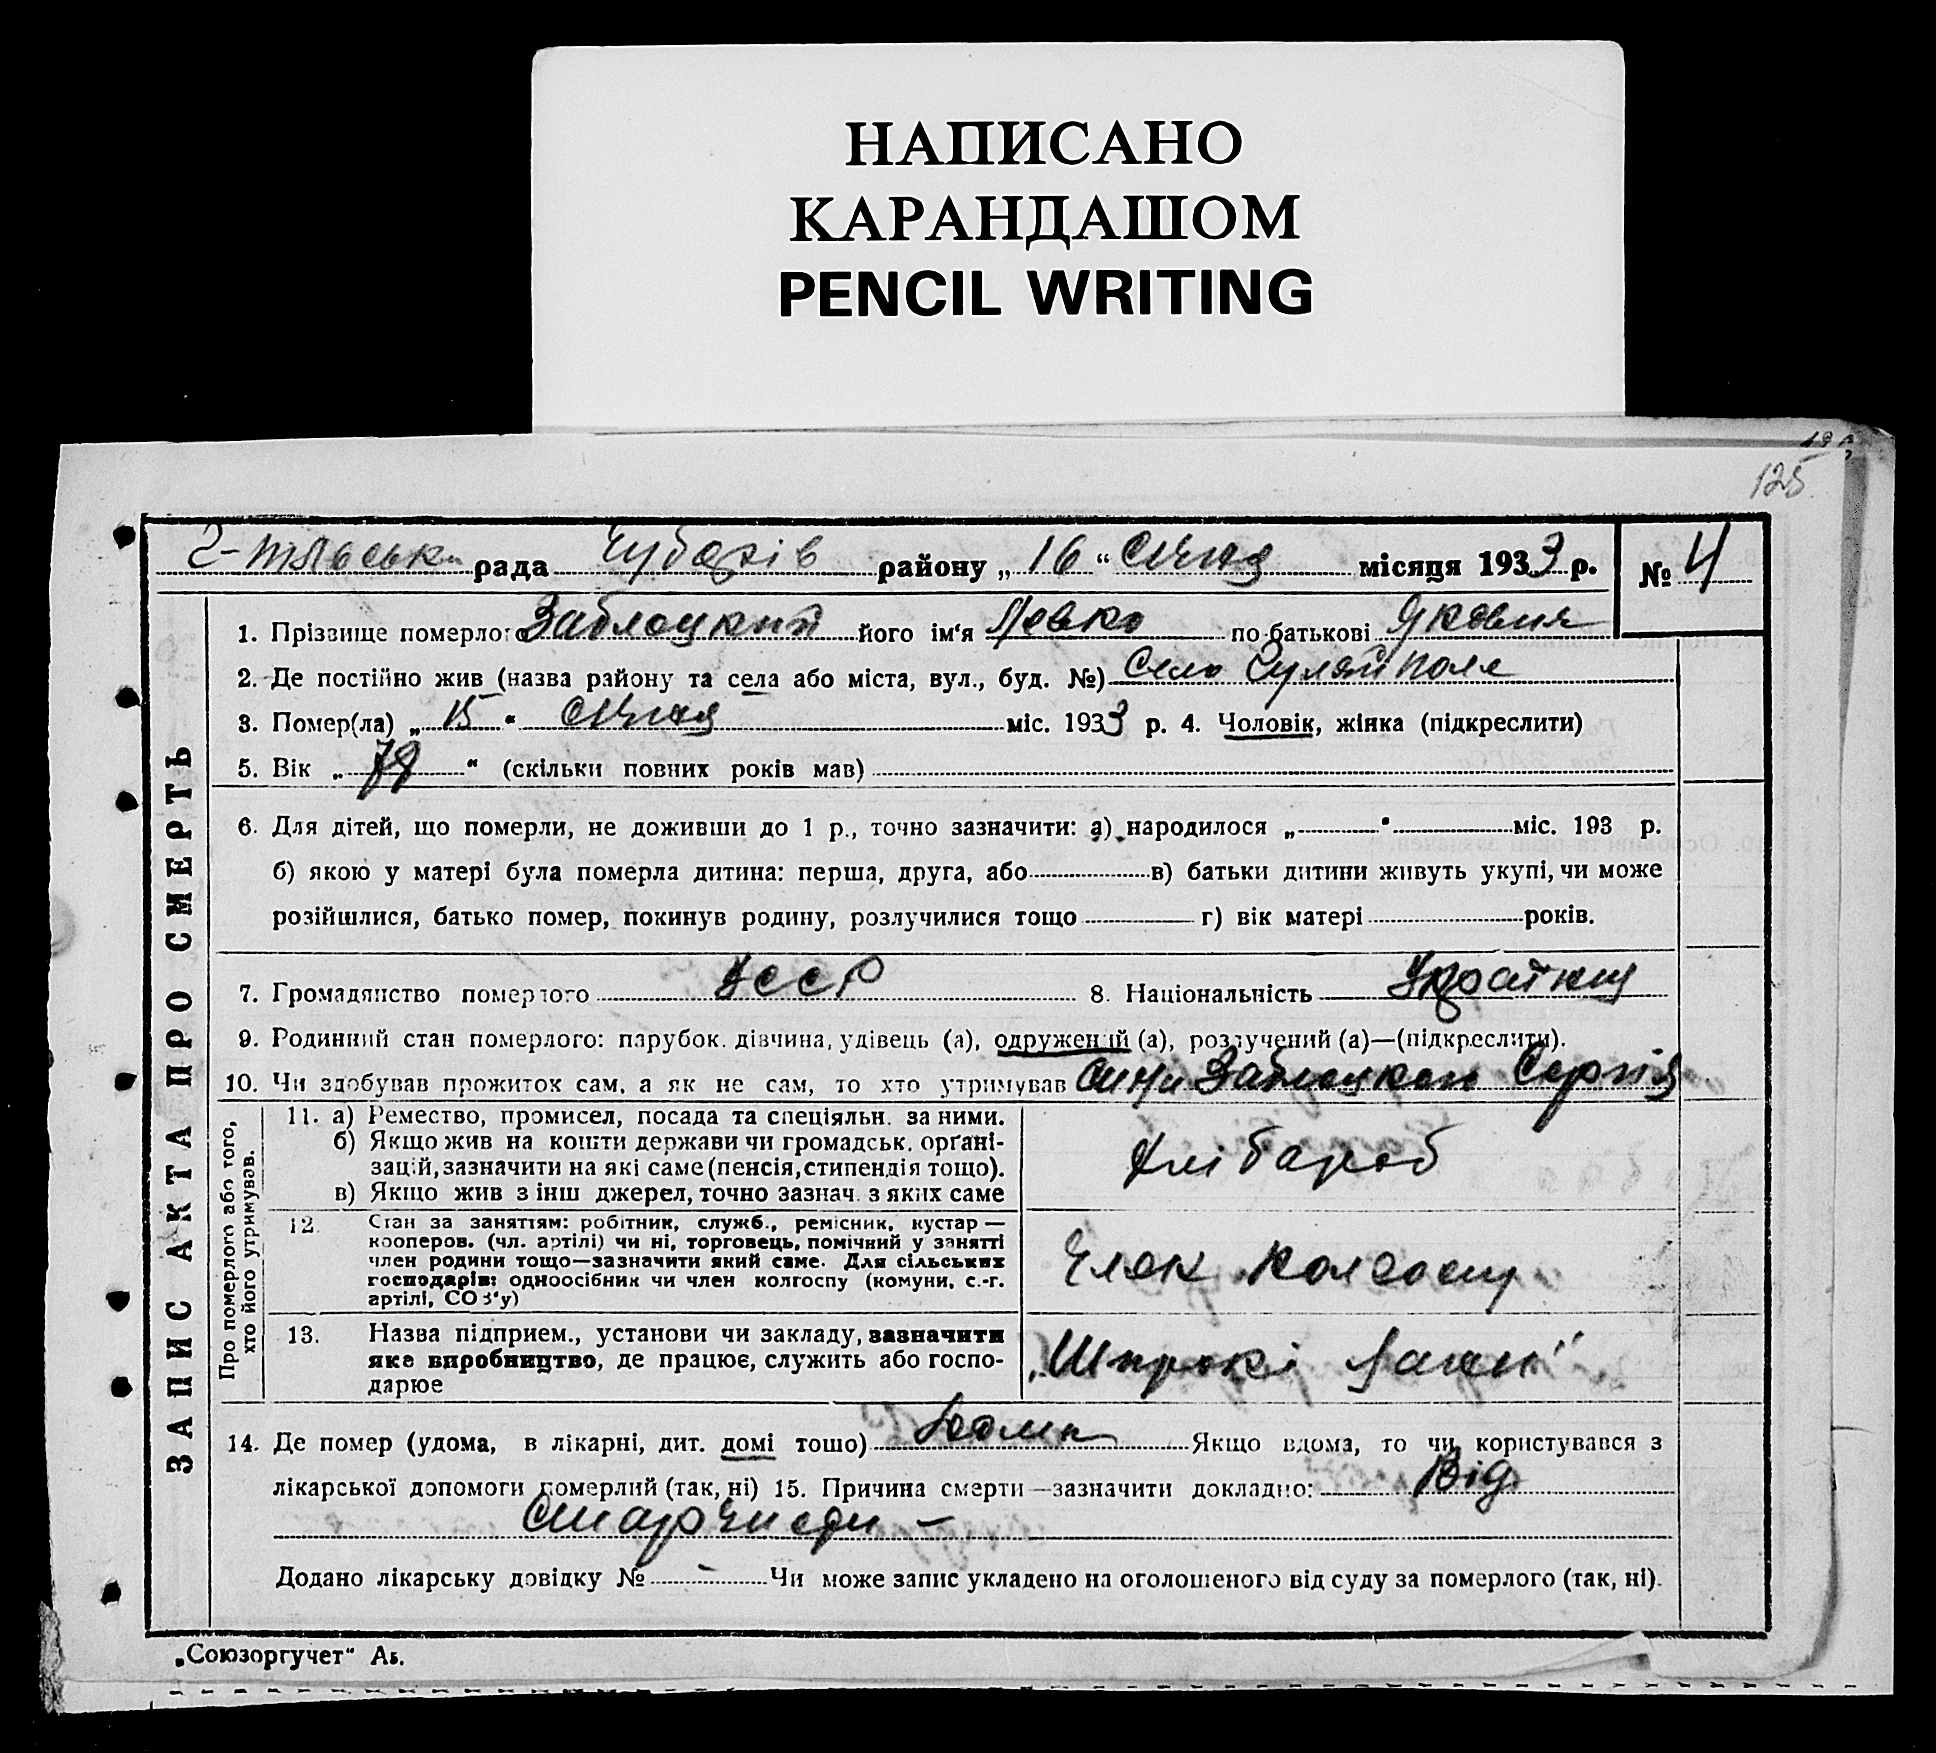 НАПИСАНО
КАРАНДАШОМ
PENCIL WRITING
125
рада Чубарів району „16“ Січня місяця 1933 р. № 4
1. Прізвище померлого Заблоцкий його ім'я Левко по батькові Якович
2. Де постійно жив (назва району та села або міста, вул., буд. №) Село Гуляйполе
3. Помер(ла) „15“ Січня міс. 1933 р. 4. Чоловік, жінка (підкреслити)
5. Вік „79“ (скільки повних років мав)
6. Для дітей, що померли, не доживши до 1 р., точно зазначити: а) народилося „ “ міс. 193 р.
б) якою у матері була померла дитина: перша, друга, або в) батьки дитини живуть укупі, чи може
розійшлися, батько помер, покинув родину, розлучилися тощо г) вік матері років.
7. Громадянство померлого УССР 8. Національність
9. Родинний стан померлого: парубок. дівчина, удівець (а), одружений (а), розлучений (а)—(підкреслити).
10. Чи здобував прожиток сам, а як не сам, то хто утримував Заблоцкого Сергія
Про померлого або того,
хто його утримував.
11. а) Ремество, промисел, посада та спеціяльн. за ними.
б) Якщо жив на кошти держави чи громадськ. орґані-
зацій, зазначити на які саме (пенсія, стипендія тощо).
в) Якщо жив з інш джерел, точно зазнач. з яких саме
Хлібароб
12. Стан за заняттям: робітник, служб., ремісник, кустар —
кооперов. (чл. артілі) чи ні, торговець, помічний у занятті
член родини тощо—зазначити який саме. Для сільських
господарів: одноосібник чи член колгоспу (комуни, с.-г.
артілі, СОЗ'у)
Член колгоспу
13. Назва підприєм., установи чи закладу, зазначити
яке виробництво, де працює, служить або госпо-
дарює
„Широкі Лани“
14. Де помер (удома, в лікарні, дит. домі тошо) Якщо вдома, то чи користувався з
лікарської допомоги померлий (так, ні) 15. Причина смерти—зазначити докладно: Від
Додано лікарську довідку № - Чи може запис укладено на оголошеного від суду за померлого (так, ні).
ЗАПИС АКТА ПРО СМЕРТЬ
„Союзоргучет“